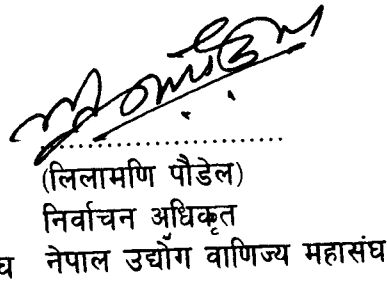 (लिलामणि पौडेल)
निर्वाचन अधिकृत
घ नेपाल उद्योग वाणिज्य महासंघ